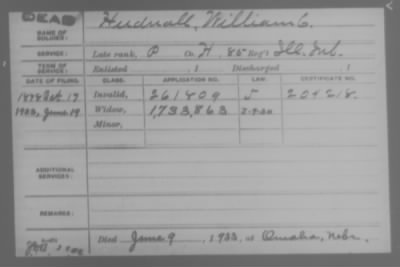 DEAD
NAME OF SOLDIER: Hudnall, William C.
SERVICE: Late rank, P Co. H, 85 Reg't Ill. Inf.
TERM OF SERVICE: Enlisted , 1 Discharged , 1
DATE OF FILING. CLASS. APPLICATION NO. LAW. CERTIFICATE NO.
1878 Oct. 17 Invalid, 261809 204218.
1933, June 19 Widow, 1,733,863
Minor,
ADDITIONAL SERVICES:
REMARKS:
Died June 9, 1933, at Omaha, Nebr.